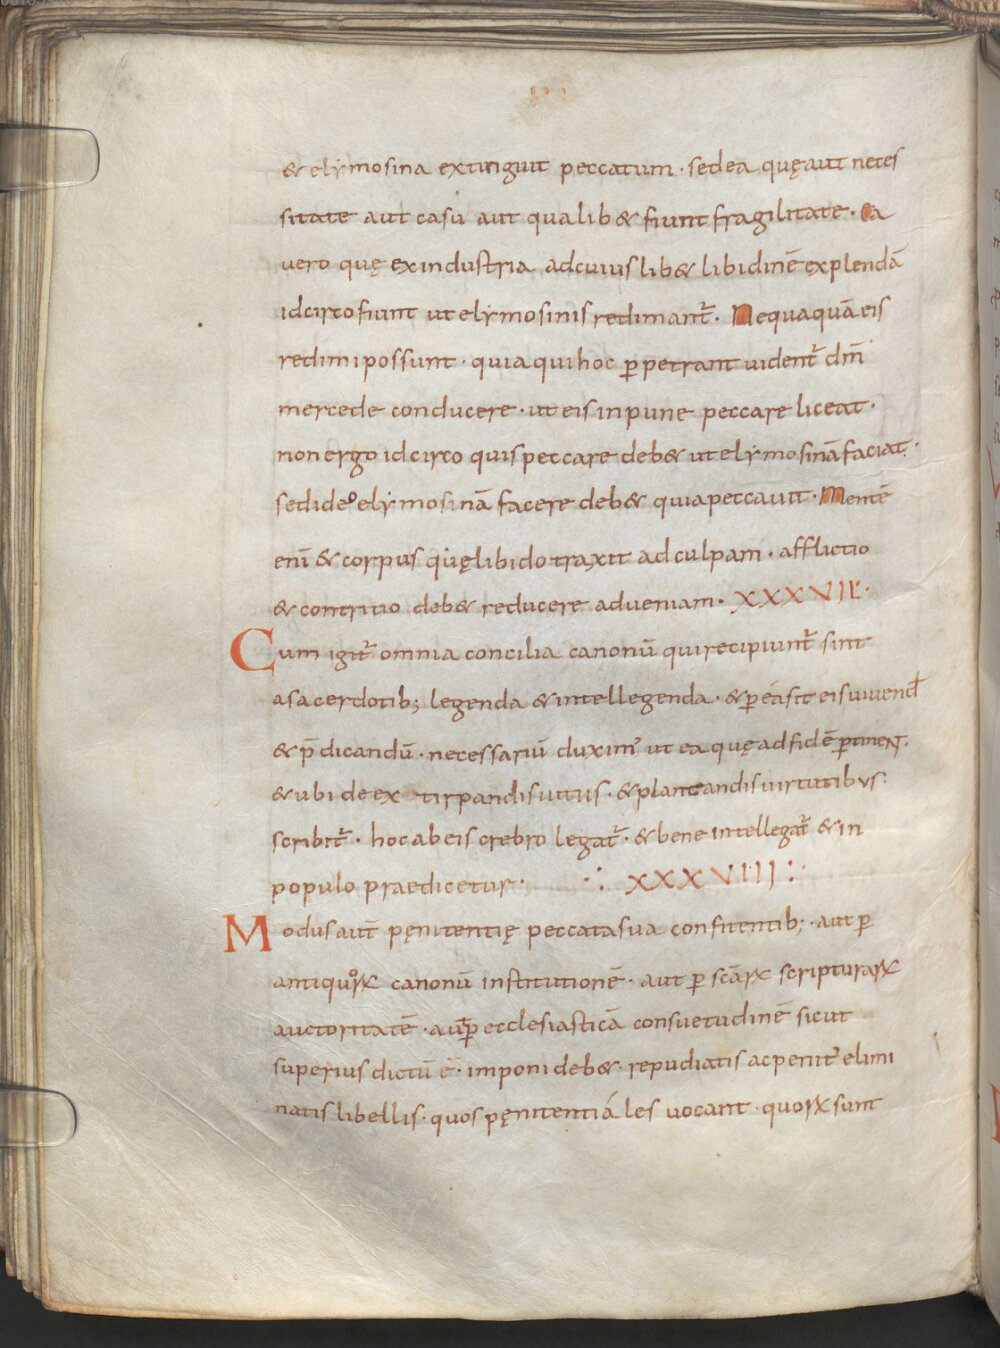 & elymosina extinguit peccatum · sed ea quę aut neces
sitate aut casu aut qualib& fiunt fragilitate · Ea
vero quę ex industria ad cuiuslib& libidinē explendā
idcirco fiunt ut elymosinis redimant᷑ · Nequaquā eis
redimi possunt · quia qui hoc ꝑpetrant uident᷑ dm̄
mercede conducere · ut eis inpune peccare liceat ·
non ergo idcirco quis peccare deb& ut elymosinā faciat ·
sed ideo elymosinā facere deb& quia peccauit · Mentē
enī & corpus quę libido traxit ad culpam · afflictio
& contritio deb& reducere ad ueniam · XXXVII ·
Cum igit᷑ omnia concilia canonū qui recipiunt᷑ sint
a sacerdotib; legenda & intellegenda · & ꝑ ea sit eis uiuend̄
& p̄dicandū · necessariū duxim᷒ ut ea quę ad fidē ꝑtinent ·
& ubi de extirpandis uitiis · & plantandis uirtutibus ·
scribit᷑ · hoc ab eis crebro legat᷑ · & bene intellegat᷑ & in
populo praedicetur · ·: XXXVIII :·
Modus aut̄ pęnitentię peccata sua confitentib; · aut ꝑ
antiquoꝝ canonū institutionē · aut ꝑ scāꝝ scripturaꝝ
auctoritatē · aut ꝑ ecclesiasticā consuetudinē sicut
superius dictū ē · imponi deb& · repudiatis ac penit᷒ elimi
natis libellis · quos pęnitentiáles uocant · quoꝝ sunt